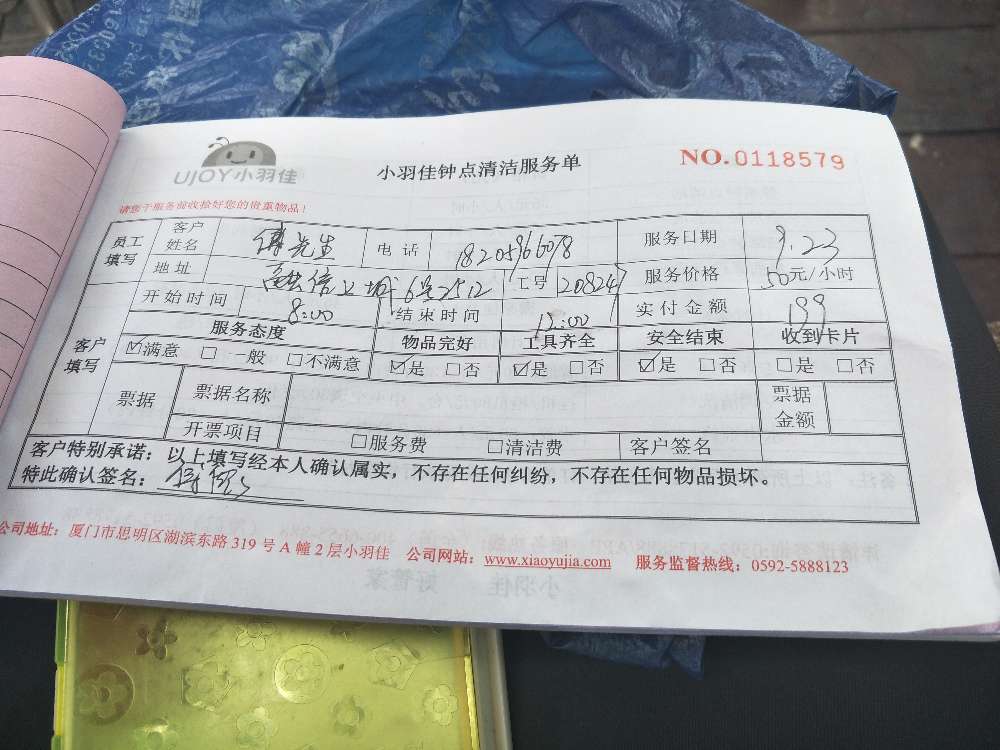 UJOY小羽佳
小羽佳钟点清洁服务单
NO.0118579
请您于服务前收拾好您的贵重物品!
员工填写 客户姓名 傅先生 电话 18205966078 服务日期 9.23
地址 6号2512 工号 208247 服务价格 50元/小时
客户填写 开始时间 8:00 结束时间 12:00 实付金额 199
服务态度 物品完好 工具齐全 安全结束 收到卡片
☑满意 □一般 □不满意 ☑是 □否 ☑是 □否 ☑是 □否 □是 □否
票据 票据名称 票据金额
开票项目 □服务费 □清洁费 客户签名
客户特别承诺:以上填写经本人确认属实,不存在任何纠纷,不存在任何物品损坏。
特此确认签名:
公司地址:厦门市思明区湖滨东路 319 号 A 幢 2 层小羽佳 公司网站:www.xiaoyujia.com 服务监督热线:0592-5888123